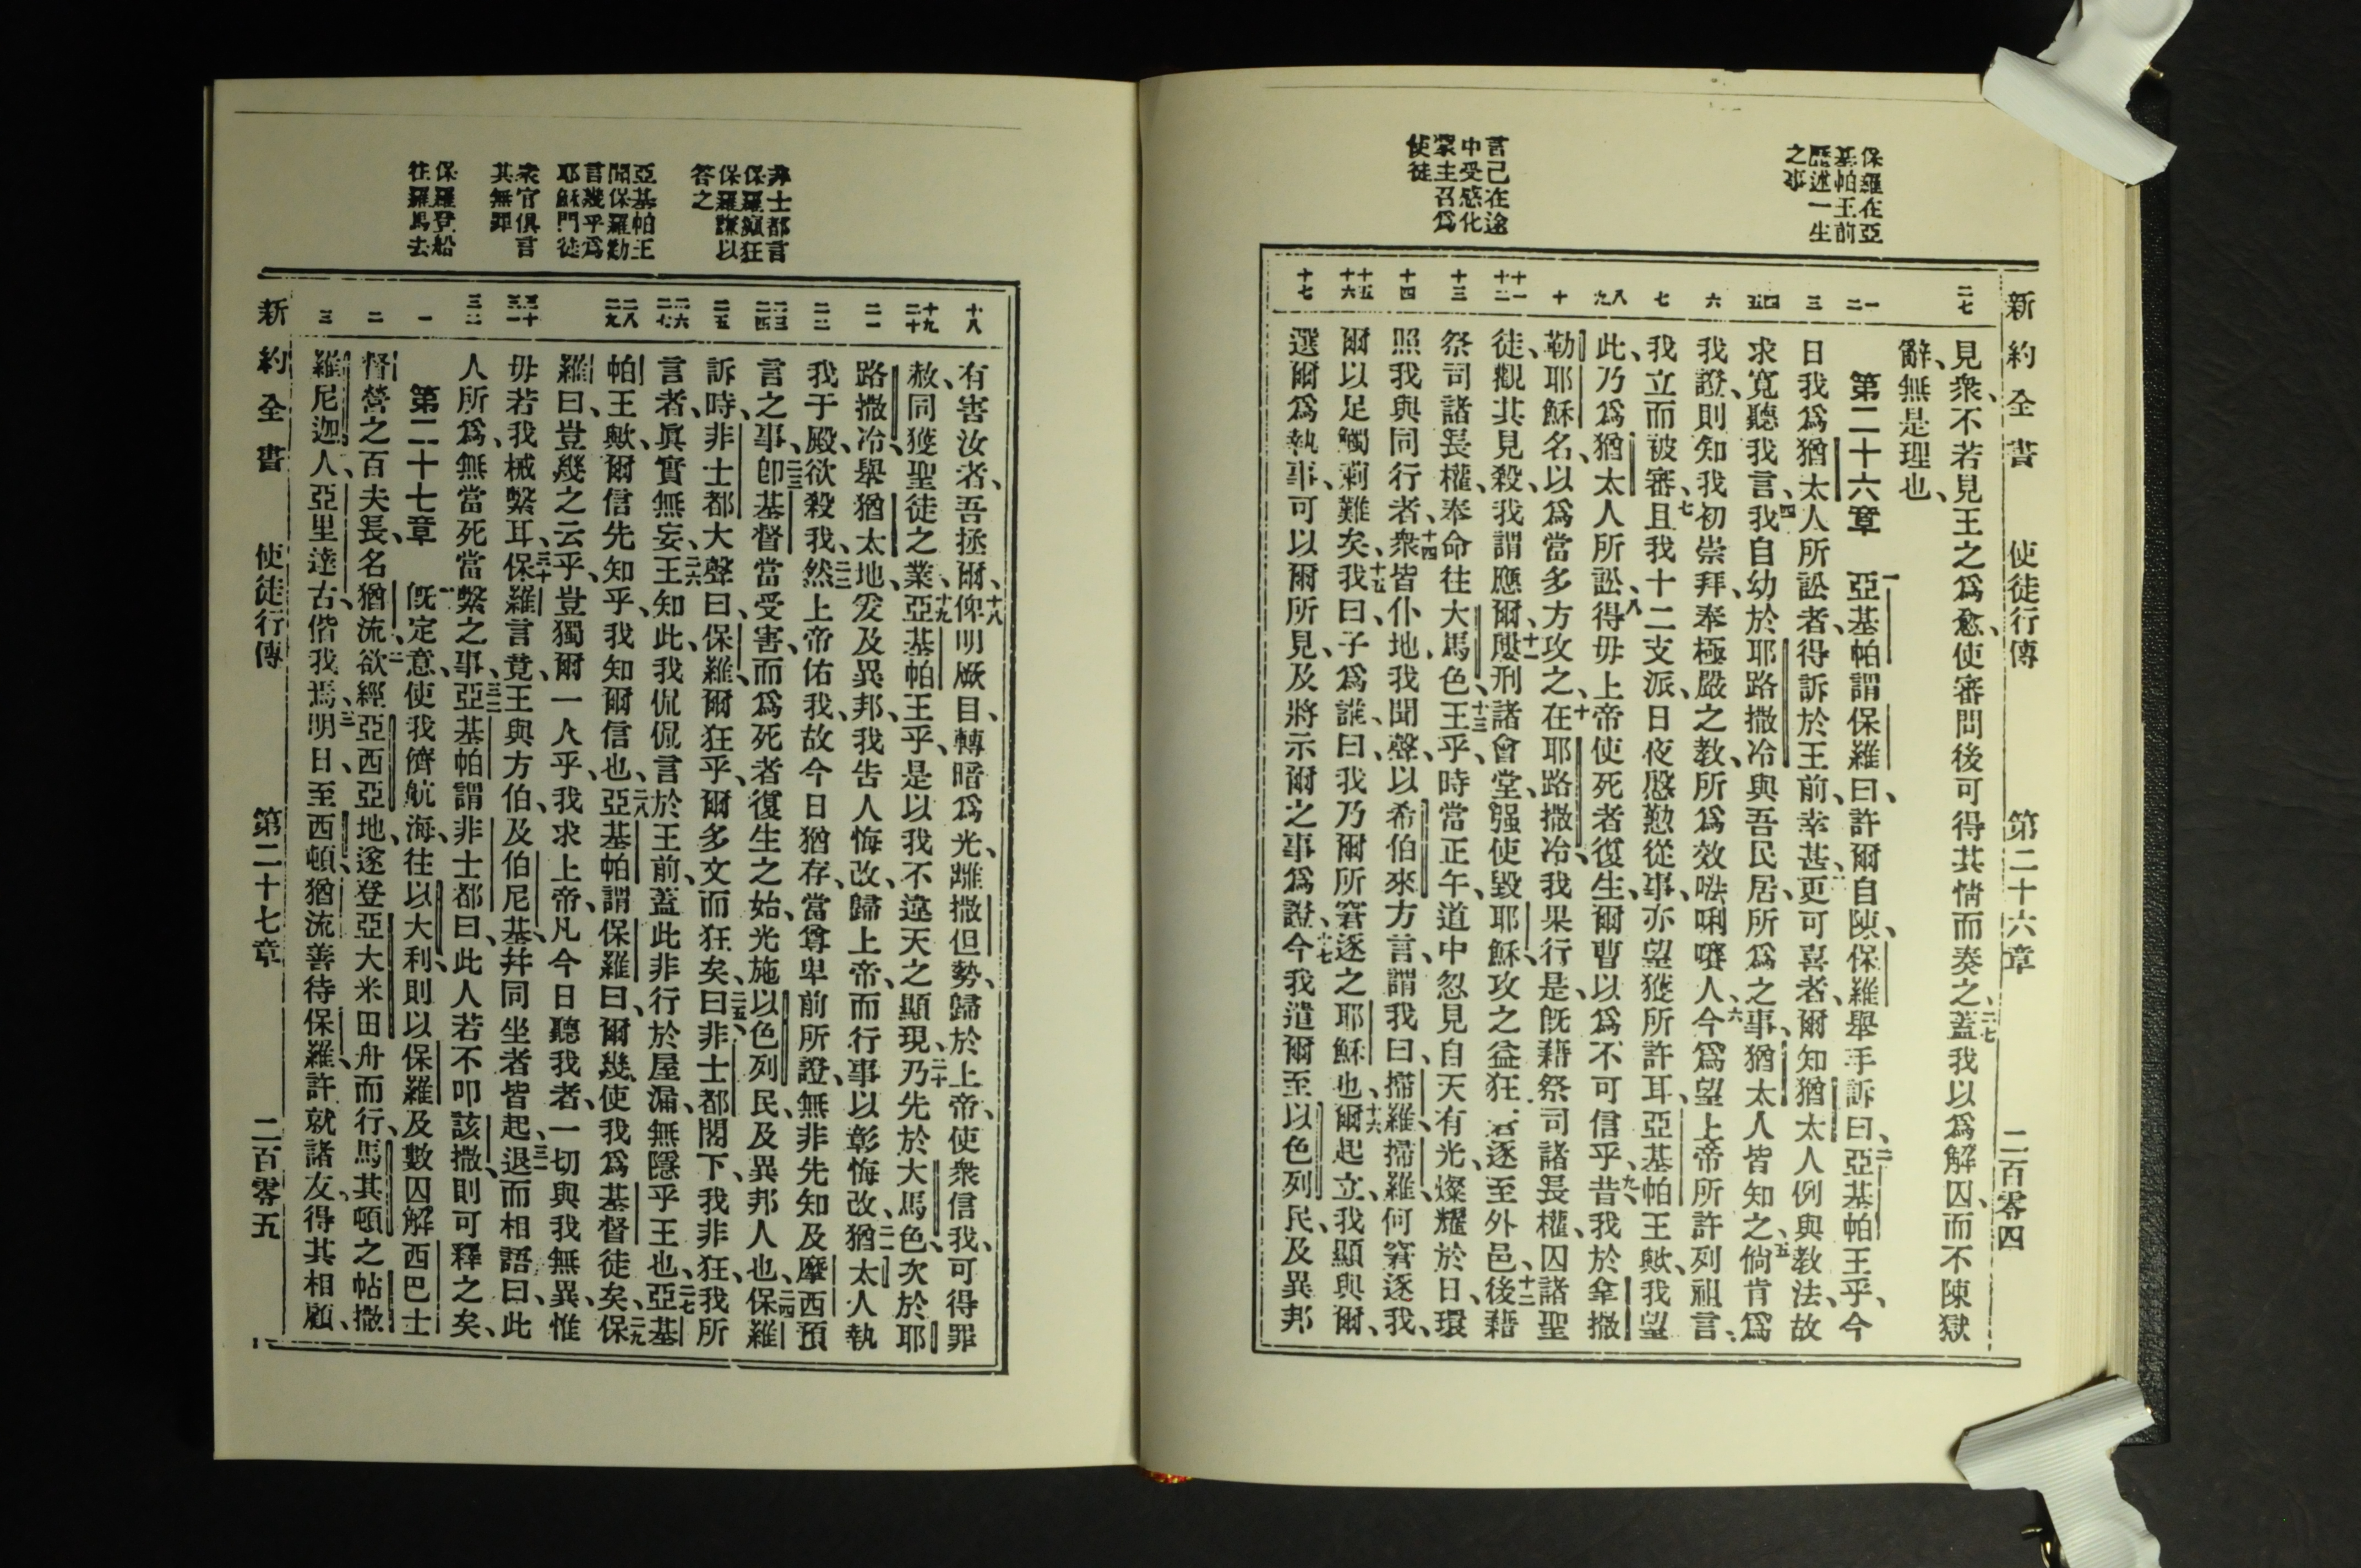 新約全書 使徒行傳 第二十六章 二百零四
保羅在亞
基帕王前
歷述一生
之事
言己在途
中受感化
蒙主召爲
使徒
二七
一
二
三
四
五
六
七
八
九
十
十一
十二
十三
十四
十五
十六
十七
見衆、不若見王之爲愈、使審問後可得其情而奏之、二七蓋我以爲解囚、而不陳獄
辭、無是理也、
第二十六章 一亞基帕謂保羅曰、許爾自陳、保羅舉手訴曰、二亞基帕王乎、今
日我爲猶太人所訟者、得訴於王前、幸甚、三更可喜者、爾知猶太人例與教法、故
求寬聽我言、四我自幼於耶路撒冷與吾民居、所爲之事、猶太人皆知之、五倘肯爲
我證、則知我初崇拜、奉極嚴之教、所爲效𠵽唎㘔人、六今爲望上帝所許列祖言、
我立而被審、七且我十二支派、日夜慇懃從事、亦望獲所許耳、亞基帕王歟、我望
此、乃爲猶太人所訟、八得毋上帝使死者復生、爾曹以爲不可信乎、九昔我於拿撒
勒耶穌名、以爲當多方攻之、十在耶路撒冷、我果行是、旣藉祭司諸長權、囚諸聖
徒、觀其見殺、我謂應爾、十一屢刑諸會堂、强使毀耶穌、攻之益狂、逐至外邑、十二後藉
祭司諸長權、奉命往大馬色、十三王乎、時當正午、道中忽見自天有光、燦耀於日、環
照我與同行者、十四衆皆仆地、我聞聲、以希伯來方言、謂我曰、掃羅、掃羅、何窘逐我、
爾以足觸刺難矣、十五我曰、子爲誰、曰、我乃爾所窘逐之耶穌也、十六爾起立、我顯與爾、
選爾爲執事、可以爾所見、及將示爾之事爲證、十七今我遣爾至以色列民、及異邦
非士都言
保羅癲狂
保羅謙以
答之
亞基帕王
聞保羅勸
言幾乎爲
耶穌門徒
衆官俱言
其無罪
保羅登船
往羅馬去
十八
十九
二十
二一
二二
二三
二四
二五
二六
二七
二八
二九
三十
三一
三二
一
二
三
有害汝者、吾拯爾、十八俾明厥目、轉暗爲光、離撒但勢、歸於上帝、使衆信我、可得罪
赦、同獲聖徒之業、十九亞基帕王乎、是以我不違天之顯現、二十乃先於大馬色、次於耶
路撒冷、舉猶太地、爰及異邦、我告人悔改、歸上帝、而行事以彰悔改、二一猶太人執
我于殿、欲殺我、二二然上帝佑我、故今日猶存、當尊卑前所證、無非先知及摩西預
言之事、二三卽基督當受害、而爲死者復生之始、光施以色列民、及異邦人也、二四保羅
訴時、非士都大聲曰、保羅、爾狂乎、爾多文而狂矣、二五曰、非士都閣下、我非狂、我所
言者、眞實無妄、二六王知此、我侃侃言於王前、蓋此非行於屋漏、無隱乎王也、二七亞基
帕王歟、爾信先知乎、我知爾信也、二八亞基帕謂保羅曰、爾幾使我爲基督徒矣、二九保
羅曰、豈幾之云乎、豈獨爾一人乎、我求上帝、凡今日聽我者、一切與我無異、惟
毋若我械繫耳、三十保羅言竟、王與方伯、及伯尼基、幷同坐者皆起、三一退而相語曰、此
人所爲、無當死當繫之事、三二亞基帕謂非士都曰、此人若不叩該撒、則可釋之矣、
第二十七章 一旣定意、使我儕航海、往以大利、則以保羅及數囚、解西巴士
督營之百夫長、名猶流、二欲經亞西亞地、遂登亞大米田舟而行、馬其頓之帖撒
羅尼迦人、亞里達古、偕我焉、三明日、至西頓、猶流善待保羅、許就諸友、得其相顧、
新約全書 使徒行傳 第二十七章 二百零五